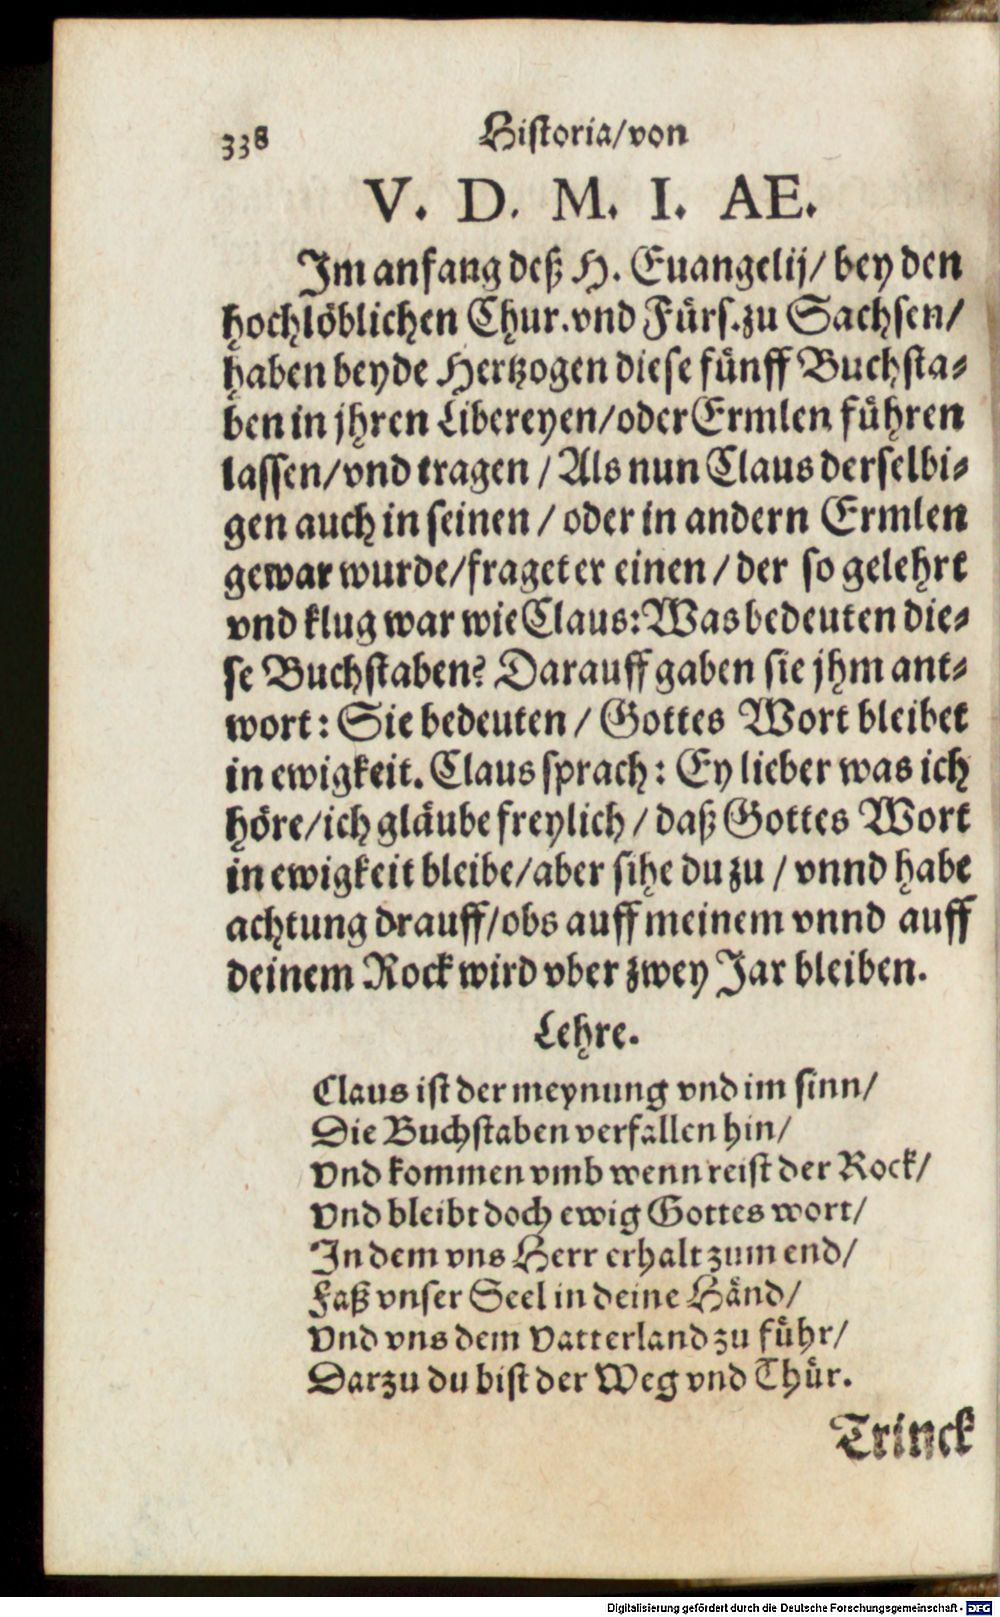 338 Historia/von
V. D. M. I. AE.
Im anfang deß H. Euangelij/ bey den
hochlöblichen Chur. vnd Fürs. zu Sachsen/
haben beyde Hertzogen diese fünff Buchsta-
ben in jhren Libereyen/oder Ermlen führen
lassen/vnd tragen / Als nun Claus derselbi-
gen auch in seinen / oder in andern Ermlen
gewar wurde/fraget er einen / der so gelehrt
vnd klug war wie Claus: Was bedeuten die-
se Buchstaben? Darauff gaben sie jhm ant-
wort: Sie bedeuten / Gottes Wort bleibet
in ewigkeit. Claus sprach: Ey lieber was ich
höre/ich gläube freylich / daß Gottes Wort
in ewigkeit bleibe/aber sihe du zu / vnnd habe
achtung drauff/obs auff meinem vnnd auff
deinem Rock wird vber zwey Jar bleiben.
Lehre.
Claus ist der meynung vnd im sinn/
Die Buchstaben verfallen hin/
Vnd kommen vmb wenn reist der Rock/
Vnd bleibt doch ewig Gottes wort/
In dem vns Herr erhalt zum end/
Faß vnser Seel in deine Händ/
Vnd vns dem Vatterland zu führ/
Darzu du bist der Weg vnd Thür.
Trinck
Digitalisierung gefördert durch die Deutsche Forschungsgemeinschaft - DFG